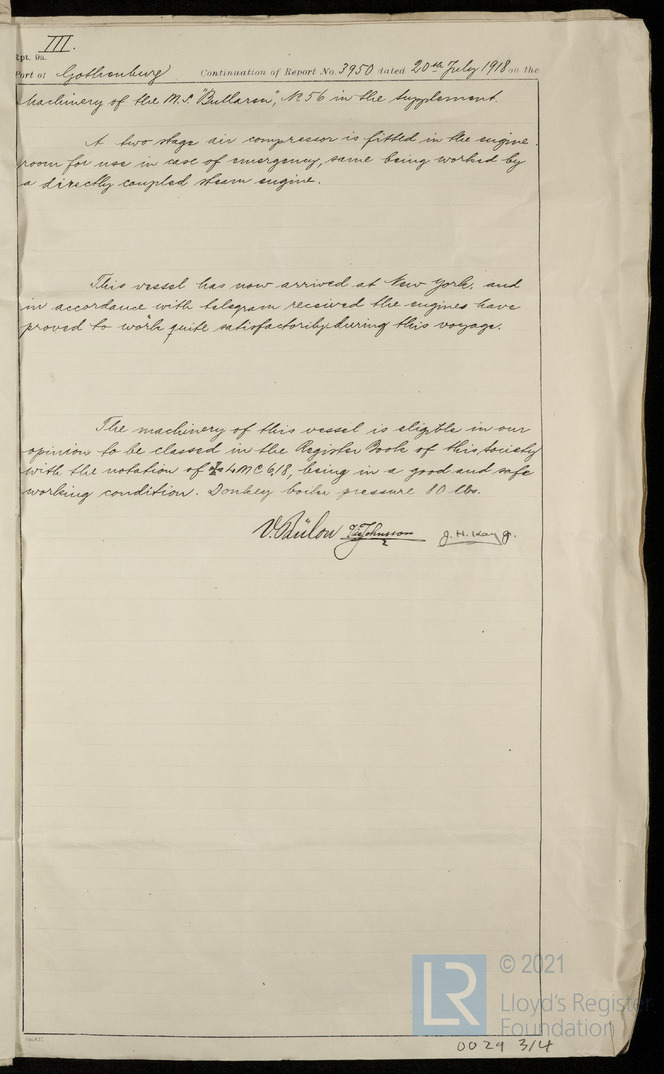 III.
Rpt. 9a.
Port of Gothenburg Continuation of Report No. 3950 dated 20th July 1918 on the
Machinery of the M.S. "Bullaren", No 56 in the Supplement.
A two stage air compressor is fitted in the engine
room for use in case of emergency, same being worked by
a directly coupled steam engine.
This vessel has now arrived at New York, and
in accordance with telegram received the engines have
proved to work quite satisfactorily during this voyage.
The machinery of this vessel is eligible in our
opinion to be classed in the Register Book of this Society
with the notation of LMC 6,18, being in a good and safe
working condition. Donkey boiler pressure 80 lbs.
V. Bülow Johnsson J. H. Kay Jr.
© 2021
LR
Lloyd's Register
Foundation
0029 3/4